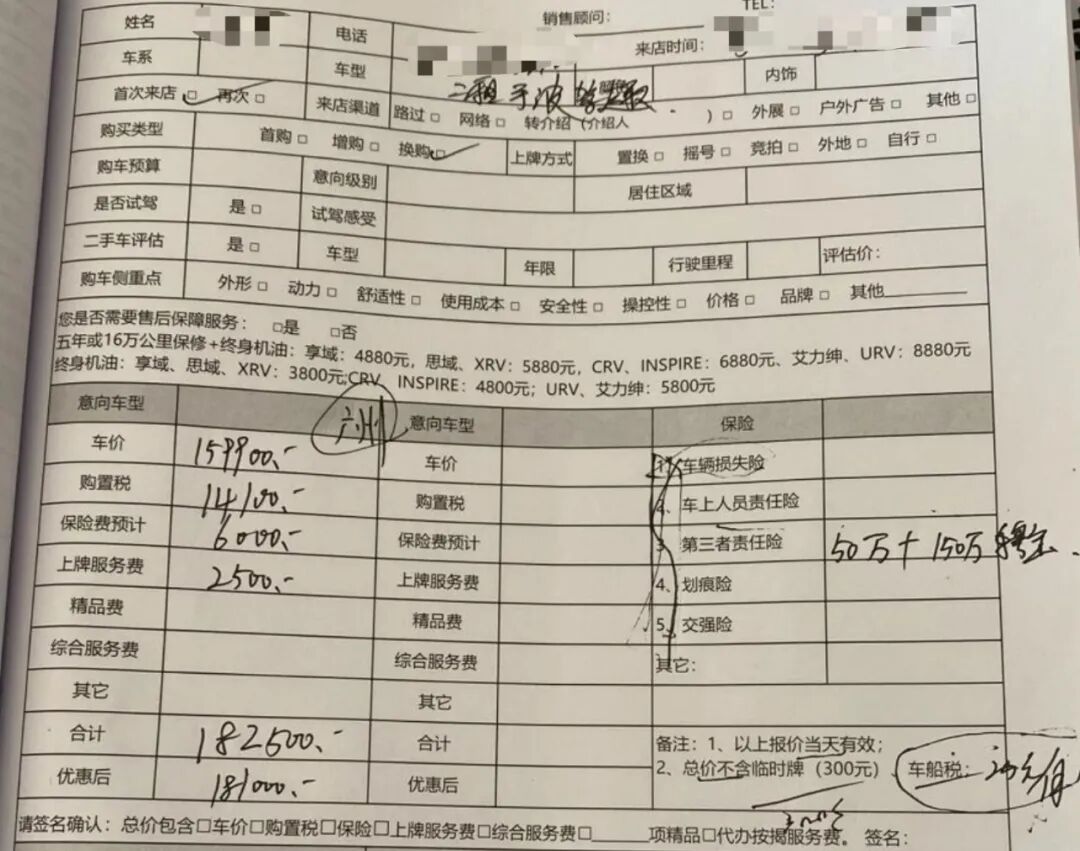 姓名 电话 销售顾问: TEL:
车系 车型 来店时间: 内饰
首次来店□ 再次□ 来店渠道 路过□ 网络□ 转介绍（介绍人 ）□ 外展□ 户外广告□ 其他□
购买类型 首购□ 增购□ 换购□ 上牌方式 置换□ 摇号□ 竞拍□ 外地□ 自行□
购车预算 意向级别 居住区域
是否试驾 是□ 试驾感受
二手车评估 是□ 车型 年限 行驶里程 评估价:
购车侧重点 外形□ 动力□ 舒适性□ 使用成本□ 安全性□ 操控性□ 价格□ 品牌□ 其他
您是否需要售后保障服务: □是 □否
五年或16万公里保修+终身机油: 享域: 4880元, 思域、XRV: 5880元, CRV、INSPIRE: 6880元、艾力绅、URV: 8880元
终身机油: 享域、思域、XRV: 3800元;CRV、INSPIRE: 4800元; URV、艾力绅: 5800元
意向车型 意向车型 保险
车价 159900.- 车价 1、车辆损失险
购置税 14100.- 购置税 2、车上人员责任险
保险费预计 6000.- 保险费预计 3、第三者责任险 50万+150万
上牌服务费 2500.- 上牌服务费 4、划痕险
精品费 精品费 5、交强险
综合服务费 综合服务费 其它:
其它 其它
合计 182500.- 合计 备注: 1、以上报价当天有效;
优惠后 181000.- 优惠后 2、总价不含临时牌（300元）、车船税:
请签名确认: 总价包含□车价□购置税□保险□上牌服务费□综合服务费□ 项精品□代办按揭服务费。 签名: